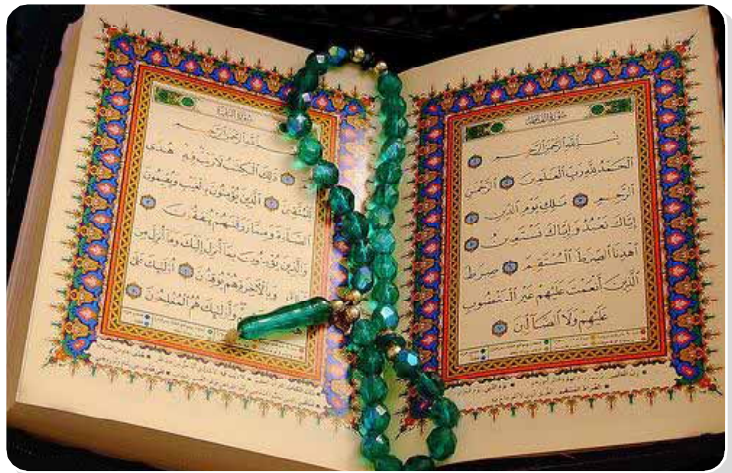 سُورَةُ الفَاتِحَةِ
بِسْمِ اللَّهِ الرَّحْمَٰنِ الرَّحِيمِ
الْحَمْدُ لِلَّهِ رَبِّ الْعَٰلَمِينَ الرَّحْمَٰنِ
الرَّحِيمِ مَٰلِكِ يَوْمِ الدِّينِ
إِيَّاكَ نَعْبُدُ وَإِيَّاكَ نَسْتَعِينُ
اهْدِنَا الصِّرَٰطَ الْمُسْتَقِيمَ صِرَٰطَ
الَّذِينَ أَنْعَمْتَ عَلَيْهِمْ غَيْرِ الْمَغْضُوبِ
عَلَيْهِمْ وَلَا الضَّالِّينَ
سُورَةُ البَقَرَةِ
بِسْمِ اللَّهِ الرَّحْمَٰنِ الرَّحِيمِ
ذَٰلِكَ الْكِتَٰبُ لَا رَيْبَ فِيهِ هُدًى
لِلْمُتَّقِينَ الَّذِينَ يُؤْمِنُونَ بِالْغَيْبِ وَيُقِيمُونَ
الصَّلَوٰةَ وَمِمَّا رَزَقْنَٰهُمْ يُنْفِقُونَ
وَالَّذِينَ يُؤْمِنُونَ بِمَا أُنْزِلَ إِلَيْكَ وَمَا أُنْزِلَ مِنْ
وَبِالْآخِرَةِ هُمْ يُوقِنُونَ أُولَٰئِكَ عَلَىٰ
وَأُولَٰئِكَ هُمُ الْمُفْلِحُونَ